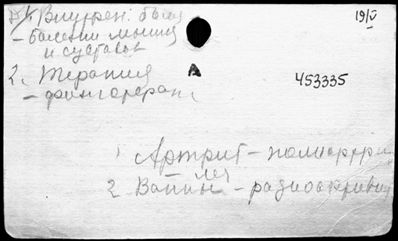 1. Внутрен. бол.
19/V
- болезни мышц
и суставов
2. Терапия
А
453335
- физиотерап
1 Артрит - полиартри
леч
2 Ванны - радиоактивн